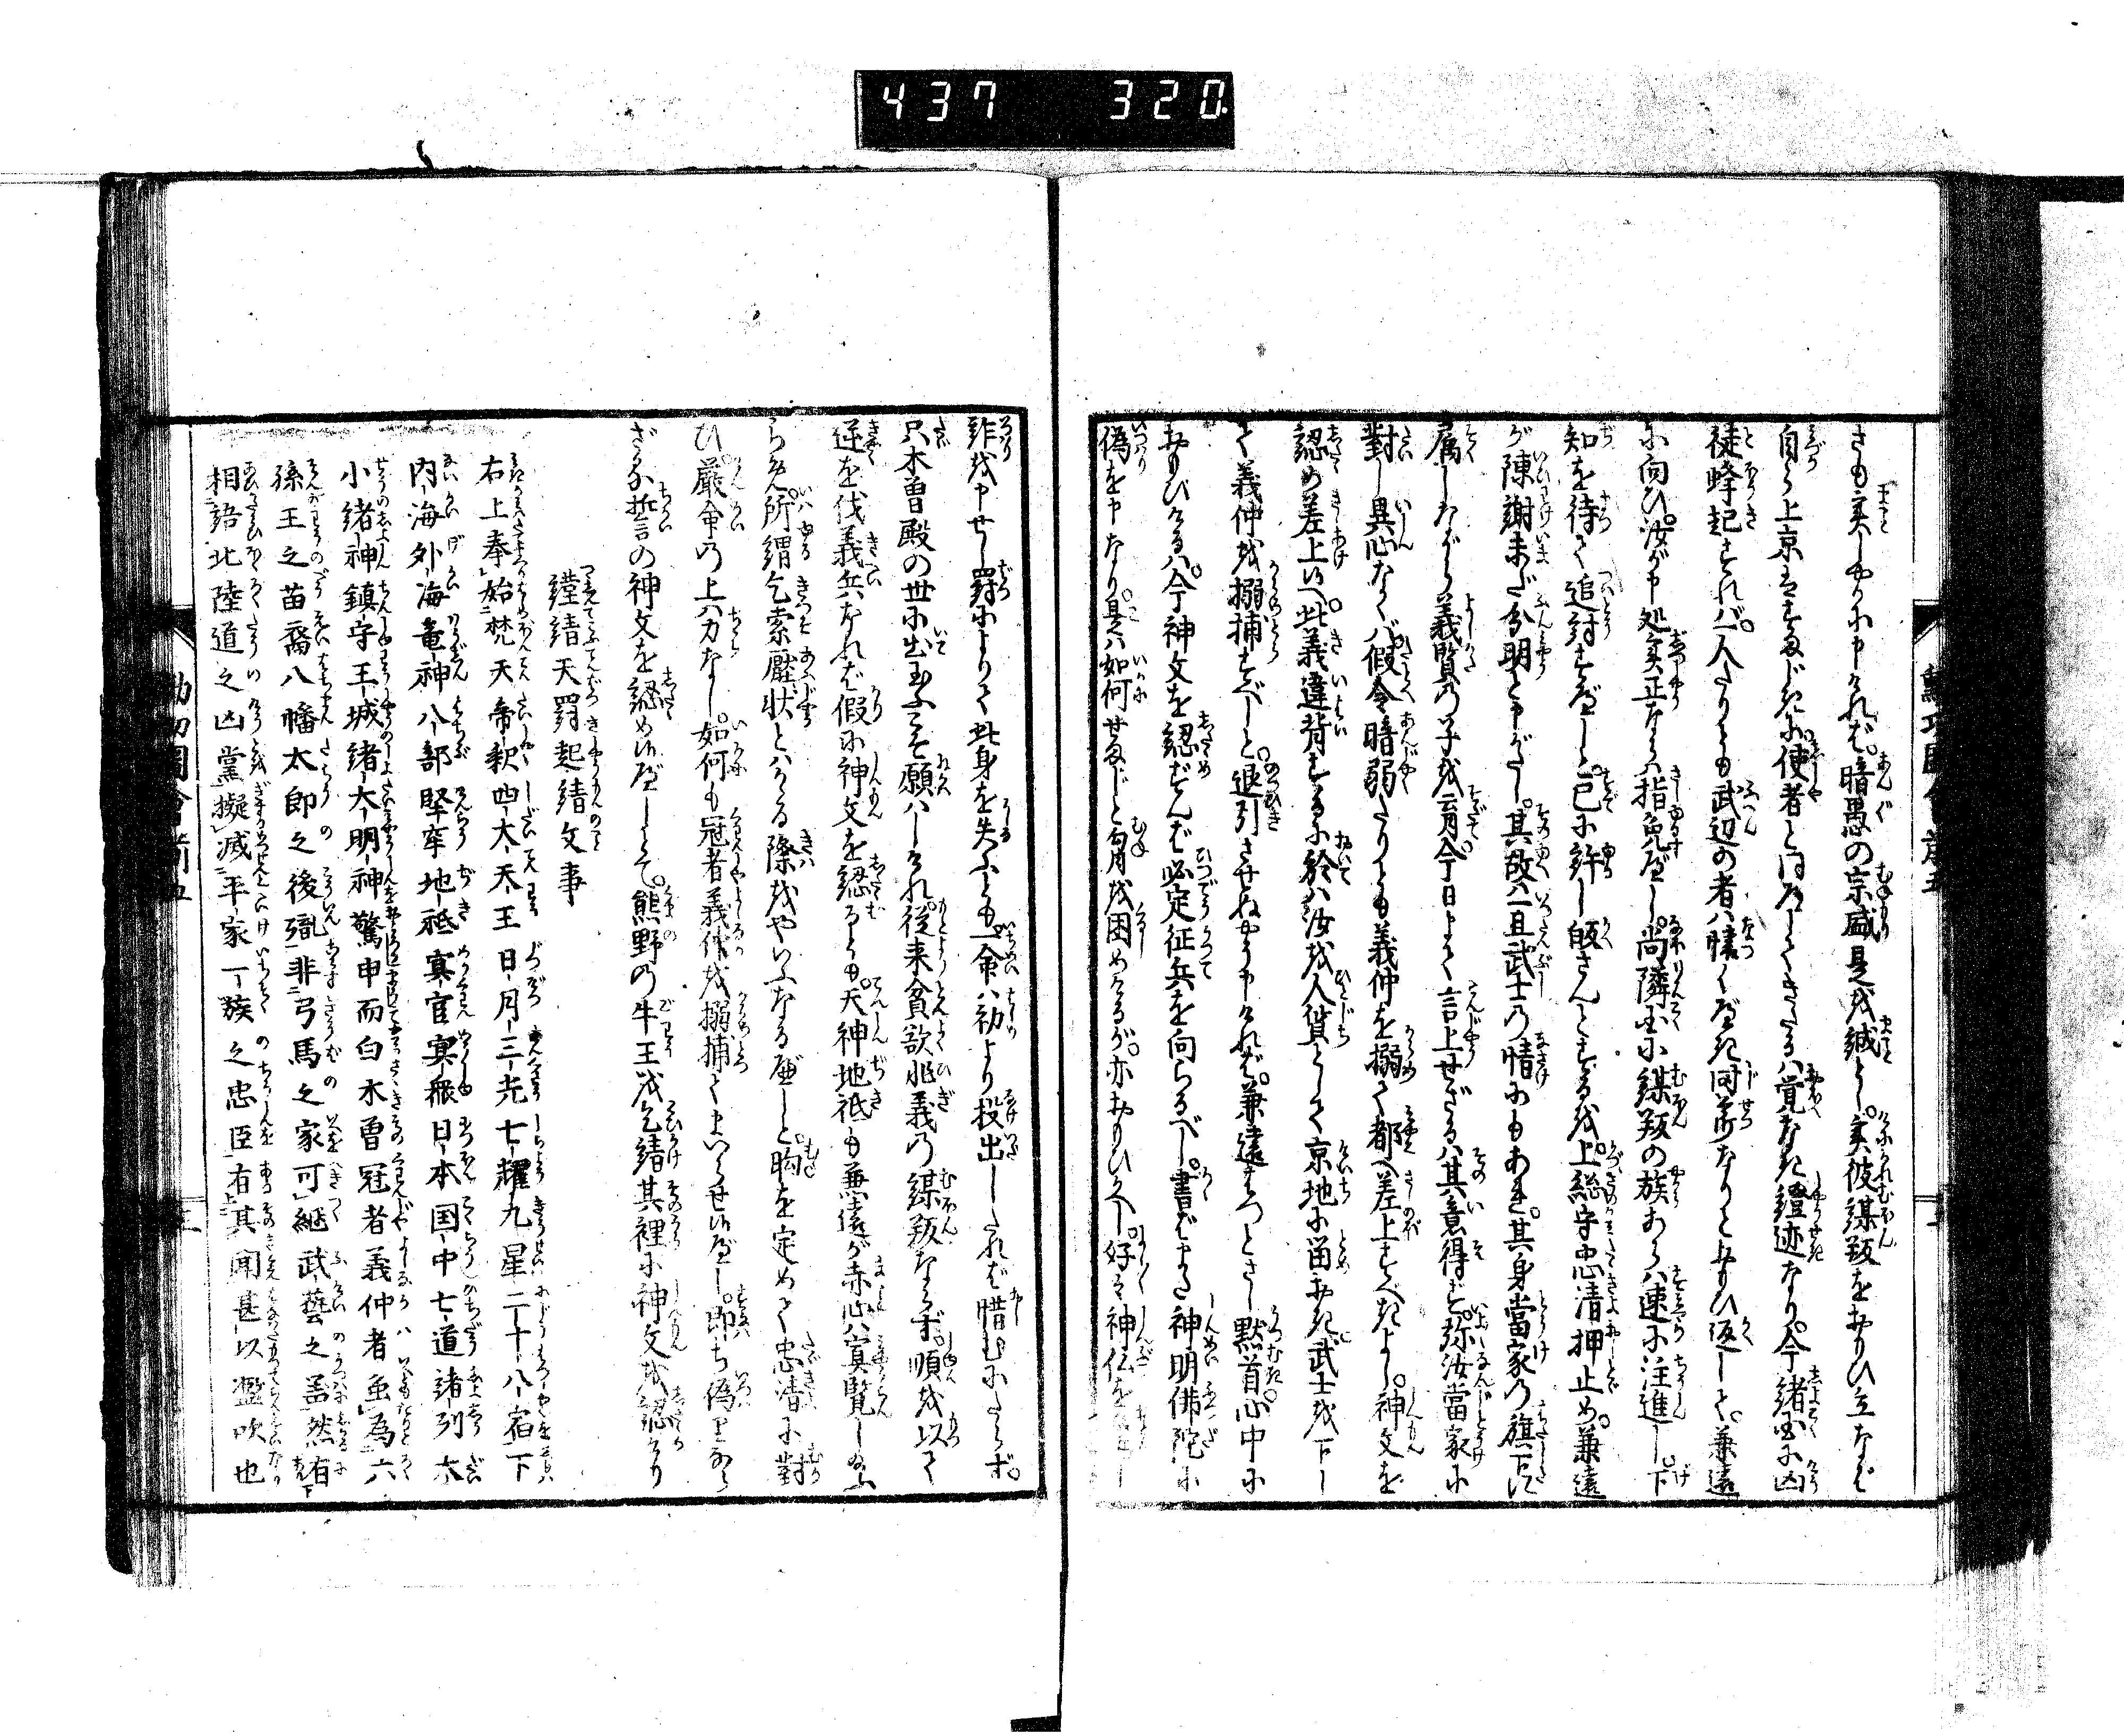 437 320
さも実しやかに申ければ。暗愚の宗盛是を誠とし。実彼謀叛をおもひ立なば
自ら上京はすまじきに。使者と同道してきたるハ覚なき證迹なり。今諸国に凶
徒蜂起すれバ。一人たりとも武辺の者ハ懐くべき時節なりと思ひ返して。兼遠
に向ひ。汝が申処実正ならバ指免べし。尚隣国に謀叛の族あらバ速に注進し。下
知を待て追討すべしと。已に許し皈さんとするを。上総守忠清押止め。兼遠
が陳謝未だ分明と申がたし。其故ハ一旦武士の情にもあれ。其身當家の旗下に
属しながら義賢の子を育。今日まで言上せざるハ其意得ず。弥汝當家に
對し異心なくバ假令暗弱たりとも義仲を搦て都へ差上すべきよし。神文を
認め差上よ。此義違背するに於ハ汝を人質として京地に留おき武士を下し
て義仲を搦捕すべしと。退引させぬやう申ければ。兼遠はつとさし黙首。心中に
おもひけるハ。今神文を認ずんば必定征兵を向らるべし。書ばまた神明佛陀に
偽を申なり。是ハ如何せましと胸を困めけるが。亦おもひけらく好々神仏を
詐を申せし罸によりて此身を失ふとも。一命ハ初より投出したれば惜むにたらず。
只木曽殿の世に出玉ふこそ願ハしけれ。従来貪欲非義の謀叛ならず。順を以て
逆を伐義兵なれば假に神文を認るとも。天神地祇も兼遠が赤心ハ冥覧し玉ふ
らん。所謂乞索壓状とハかゝる際をやいふなるべしと。胸を定めて忠清に對
ひ。厳命の上ハ力なし。如何も冠者義仲を搦捕てまいらせ候べし。即ち偽りなら
ざる誓の神文を認め候べしとて。熊野の牛王を乞請其裡に神文を認けり
謹請天罸起請文事
右上奉始梵天帝釈四大天王日月三光七耀九星二十八宿下
内海外海竜神八部堅牢地祇冥官冥衆日本国中七道諸列大
小諸神鎮守王城諸大明神驚申而白木曽冠者義仲者為六
孫王之苗裔八幡太郎之後胤非弓馬之家可継武藝之器然有
相語北陸道之凶黨擬滅平家一族之忠臣有其聞甚以濫吹也